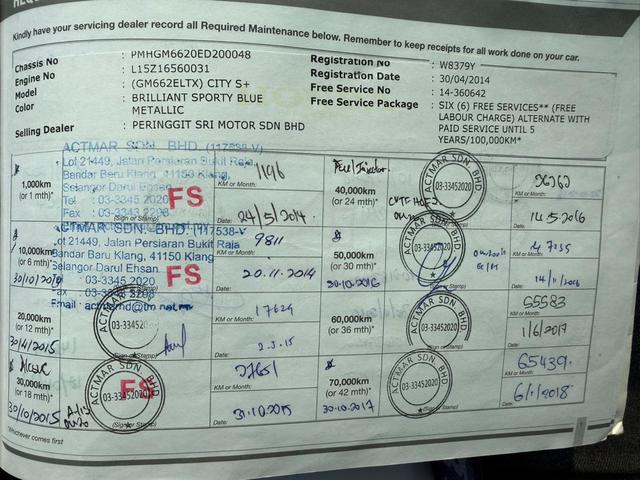 Kindly have your servicing dealer record all Required Maintenance below. Remember to keep receipts for all work done on your car.
Chassis No : PMHGM6620ED200048
Engine No : L15Z16560031
Model : (GM662ELTX) CITY S+
Color : BRILLIANT SPORTY BLUE
METALLIC
Selling Dealer : PERINGGIT SRI MOTOR SDN BHD
Registration No : W8379Y
Registration Date : 30/04/2014
Free Service No : 14-360642
Free Service Package : SIX (6) FREE SERVICES** (FREE
LABOUR CHARGE) ALTERNATE WITH
PAID SERVICE UNTIL 5
YEARS/100,000KM*
ACTMAR SDN. BHD. (117538-V)
Lot 21449, Jalan Persiaran Bukit Raja,
Bandar Baru Klang, 41150 Klang
Selangor Darul Ehsan.
Tel : 03-3345 2020
Fax
FS
1,000km
(or 1 mth)*
(Sign or Stamp)
1196
KM or Month:
24/5/2014
Date:
40,000km
(or 24 mth)*
ACTMAR SDN BHD
03-33452020
KM or Month:
14.5.2016
Date:
ACTMAR SDN. BHD. (117538-V
Lot 21449, Jalan Persiaran Bukit Raja
Bandar Baru Klang, 41150 Klang
Selangor Darul Ehsan.
: 03-3345 2020
Fax
Email :
FS
10,000km
(or 6 mth)*
9811
KM or Month:
20.11.2014
Date:
50,000km
(or 30 mth)*
30.10.2016
ACTMAR SDN BHD
03-33452020
KM or Month:
Date:
20,000km
(or 12 mth)*
30/4/2015
03-33452020
(Sign or Stamp)
17624
KM or Month:
2.3.15
Date:
60,000km
(or 36 mth)*
ACTMAR SDN BHD
03-33452020
55583
KM or Month:
1/6/2017
Date:
30,000km
(or 18 mth)*
30/10/2015
ACTMAR SDN BHD
03-33452020
FS
(Sign or Stamp)
KM or Month:
31.10.2015
Date:
70,000km
(or 42 mth)*
30.10.2017
ACTMAR SDN BHD
03-33452020
(Sign or Stamp)
65439
KM or Month:
6/1/2018
Date:
*Whichever comes first